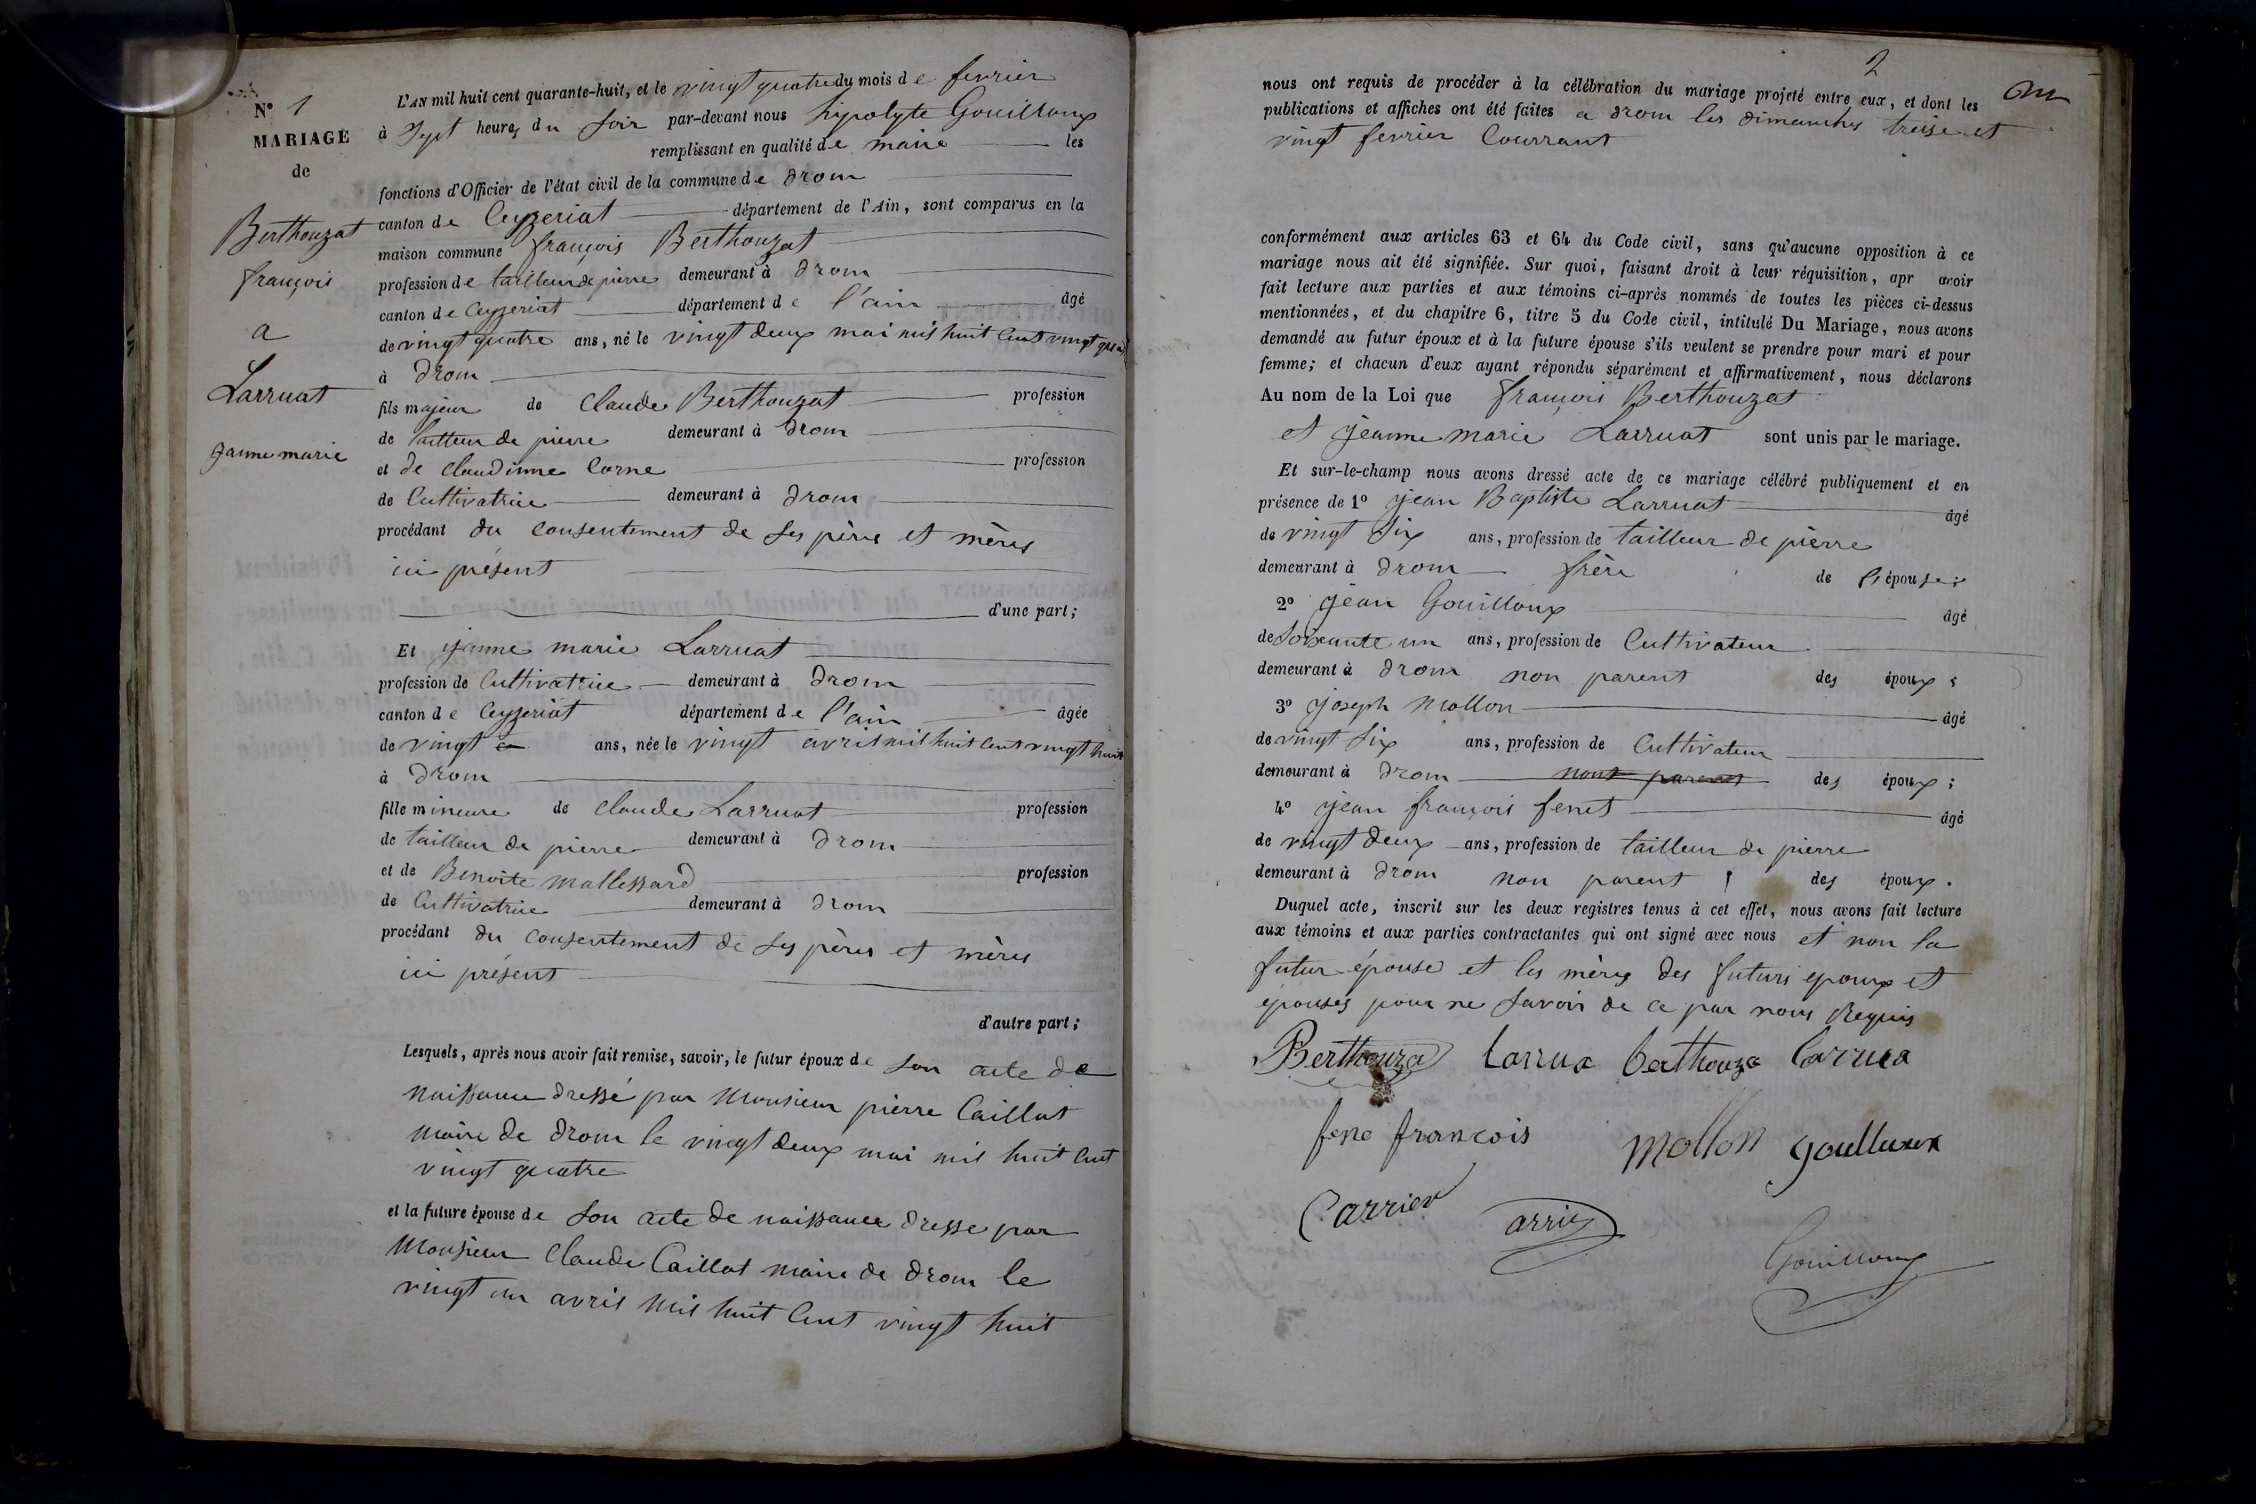 N° 1
MARIAGE
de
Berthouzat
françois
a
Larruat
janne marie
L'AN mil huit cent quarante-huit, et le vingt quatre du mois de fevrier
à Sept heures du Soir par-devant nous hipolyte Gouilloux
remplissant en qualité de maire les
fonctions d'Officier de l'état civil de la commune de drom
canton de Ceyzeriat département de l'Ain, sont comparus en la
maison commune françois Berthouzat
profession de tailleur de pierre demeurant à drom
canton de Ceyzeriat département de l'ain âgé
de vingt quatre ans, né le vingt deux mai mil huit Cent vingt quatre
à drom
fils majeur de Claude Berthouzat profession
de tailleur de pierre demeurant à drom
et de Claudinne Corne profession
de Cultivatrice demeurant à drom
procédant du consentement de Ses pères et mères
ici présent
d'une part;
Et janne marie Larruat
profession de Cultivatrice demeurant à drom
canton de Ceyzeriat département de l'ain âgée
de vingt ans, née le vingt avril mil huit Cent vingt huit
à drom
fille mineure de Claude Larruat profession
de tailleur de pierre demeurant à drom
et de Benoite mallessard profession
de Cultivatrice demeurant à drom
procédant du consentement de Ses pères et mères
ici présent
d'autre part;
Lesquels, après nous avoir fait remise, savoir, le futur époux de Son acte de
naissance dressé par Monsieur pierre Caillat
maire de drom le vingt deux mai mil huit Cent
vingt quatre
et la future épouse de Son acte de naissance dresse par
Monsieur Claude Caillat maire de drom le
vingt un avril mil huit Cent vingt huit
2
nous ont requis de procéder à la célébration du mariage projeté entre eux, et dont les
publications et affiches ont été faites a drom les dimanches treise et
vingt fevrier Courrant
conformément aux articles 63 et 64 du Code civil, sans qu'aucune opposition à ce
mariage nous ait été signifiée. Sur quoi, faisant droit à leur réquisition, apr avoir
fait lecture aux parties et aux témoins ci-après nommés de toutes les pièces ci-dessus
mentionnées, et du chapitre 6, titre 5 du Code civil, intitulé Du Mariage, nous avons
demandé au futur époux et à la future épouse s'ils veulent se prendre pour mari et pour
femme; et chacun d'eux ayant répondu séparément et affirmativement, nous déclarons
Au nom de la Loi que françois Berthouzat
et jeanne marie Larruat sont unis par le mariage.
Et sur-le-champ nous avons dressé acte de ce mariage célébré publiquement et en
présence de 1° jean Baptiste Larruat âgé
de vingt Six ans, profession de tailleur de pierre
demeurant à drom frère de l'épouse;
2° jean Gouilloux âgé
de Soixante un ans, profession de Cultivateur
demeurant à drom non parent des époux;
3° joseph Mollon âgé
de vingt Six ans, profession de Cultivateur
demeurant à drom nont parent des époux;
4° jean françois fenet âgé
de vingt deux ans, profession de tailleur de pierre
demeurant à drom non parent des époux.
Duquel acte, inscrit sur les deux registres tenus à cet effet, nous avons fait lecture
aux témoins et aux parties contractantes qui ont signé avec nous et non la
futur épouse et les mères des futurs epoux et
épouses pour ne Savoir de ce par nous Requis
Berthouza Larrua berthouza Carrua
fene francois mollon goulluux
Carrier
Gouilloux